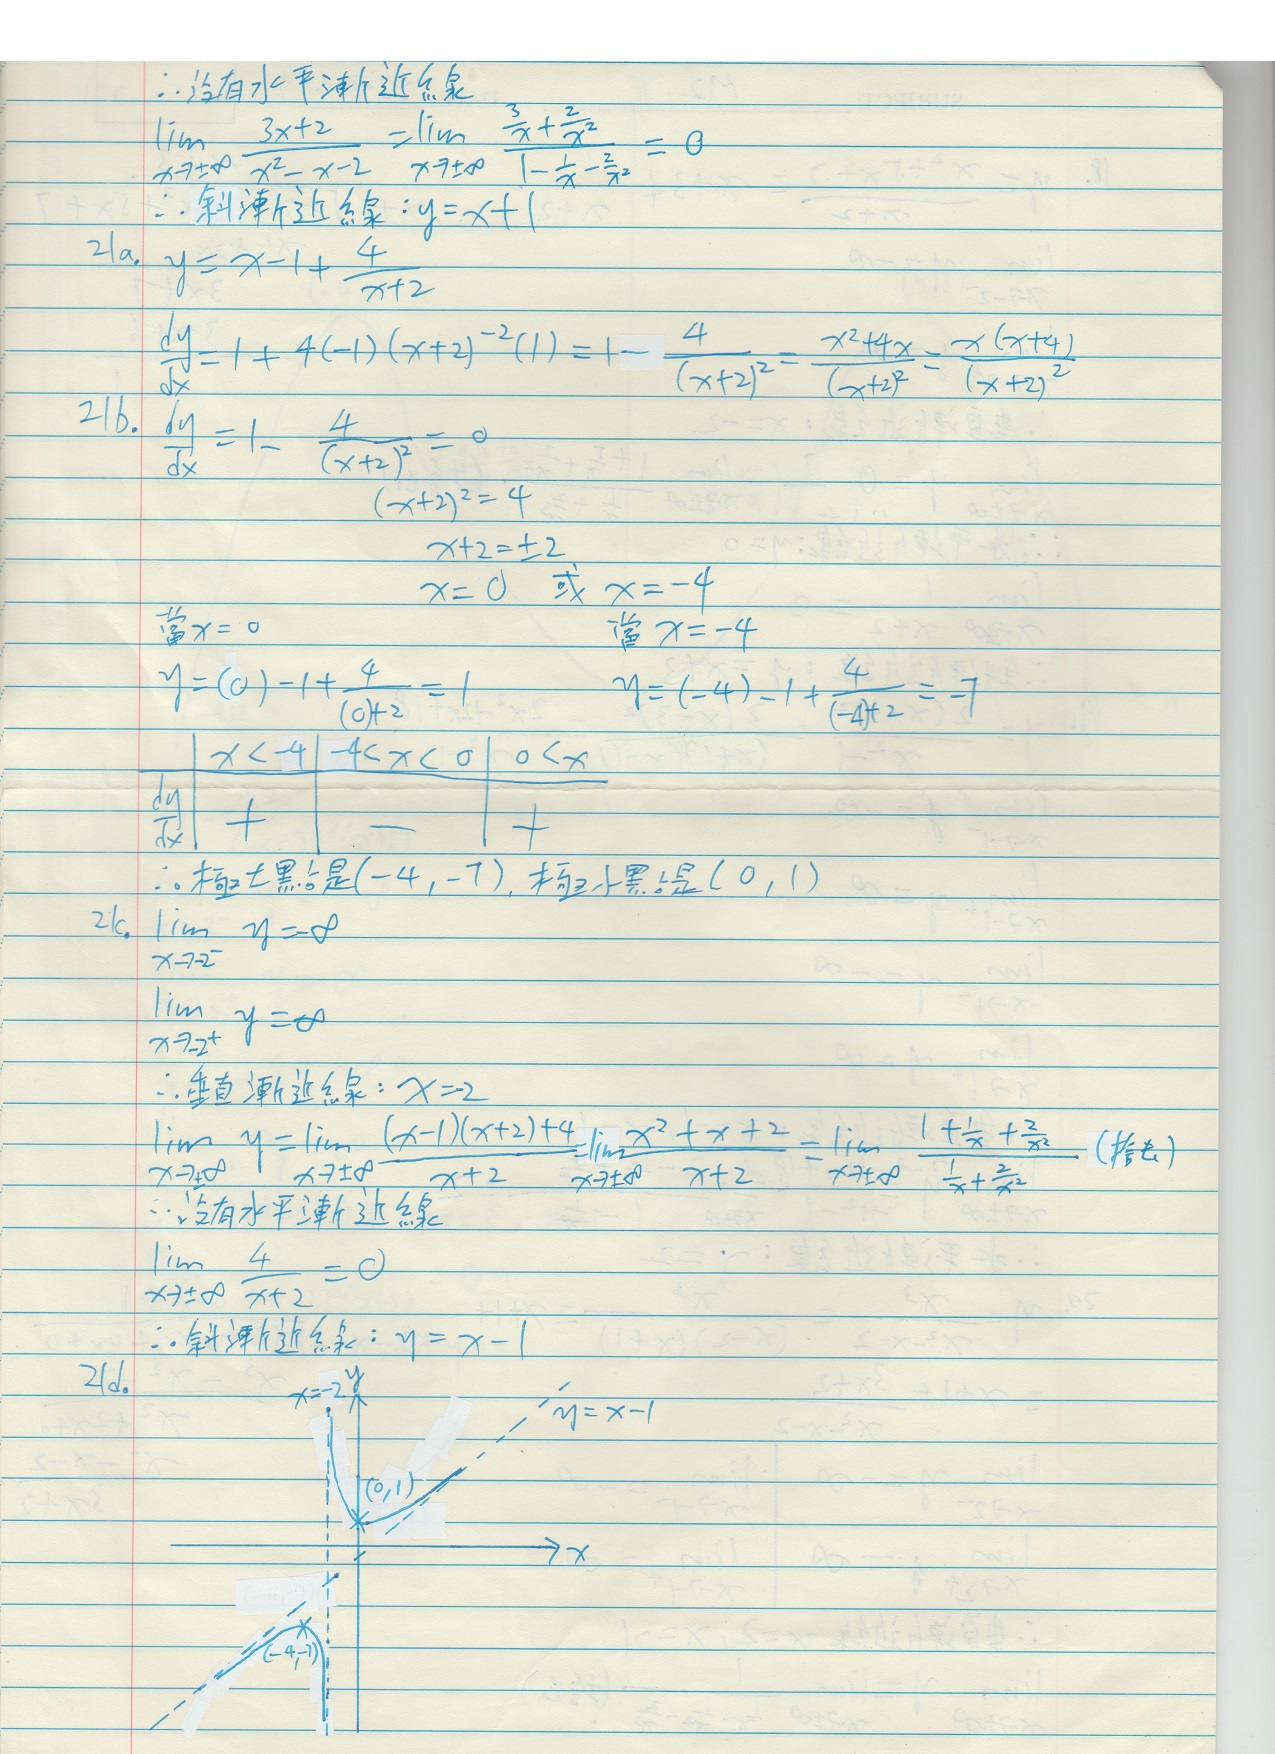 ∴沒有水平漸近線
lim x→±∞ (3x+2)/(x²-x-2) = lim x→±∞ (3/x + 2/x²)/(1 - 1/x - 2/x²) = 0
∴斜漸近線:y=x+1
21a. y = x-1 + 4/(x+2)
dy/dx = 1 + 4(-1)(x+2)⁻²(1) = 1 - 4/(x+2)² = (x²+4x)/(x+2)² = x(x+4)/(x+2)²
21b. dy/dx = 1 - 4/(x+2)² = 0
(x+2)² = 4
x+2 = ±2
x = 0 或 x = -4
當 x = 0 當 x = -4
y = (0) - 1 + 4/((0)+2) = 1 y = (-4) - 1 + 4/((-4)+2) = -7
x < -4 -4 < x < 0 0 < x
dy/dx + - +
∴極大點是(-4,-7),極小點是(0,1)
21c. lim x→-2⁻ y = -∞
lim x→-2⁺ y = ∞
∴垂直漸近線:x=-2
lim x→±∞ y = lim x→±∞ ((x-1)(x+2)+4)/(x+2) = lim x→±∞ (x²+x+2)/(x+2) = lim x→±∞ (1 + 1/x + 2/x²)/(1/x + 2/x²) (捨去)
∴沒有水平漸近線
lim x→±∞ 4/(x+2) = 0
∴斜漸近線:y = x-1
21d.
x=-2 y
y=x-1
(0,1)
x
(-4,-7)